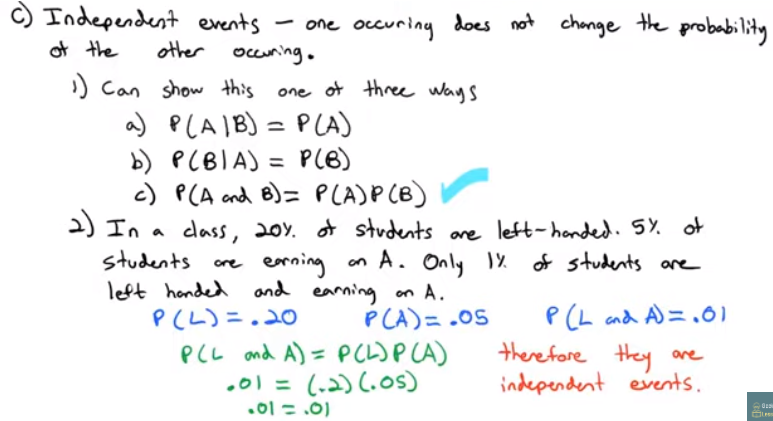 c) Independent events – one occuring does not change the probability
of the other occuring.
1) Can show this one of three ways
a) P(A|B) = P(A)
b) P(B|A) = P(B)
c) P(A and B) = P(A)P(B)
2) In a class, 20% of students are left-handed. 5% of
students are earning an A. Only 1% of students are
left handed and earning an A.
P(L) = .20 P(A) = .05 P(L and A) = .01
P(L and A) = P(L)P(A) therefore they are
.01 = (.2)(.05) independent events.
.01 = .01